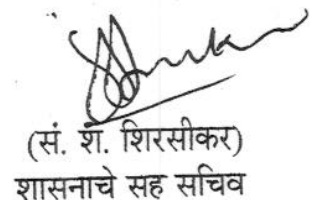 (सं. शं. शिरसीकर)
शासनाचे सह सचिव